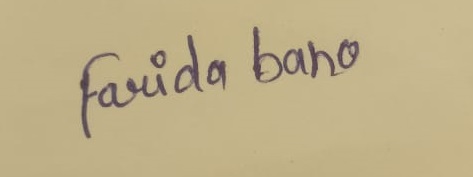 Farida bano